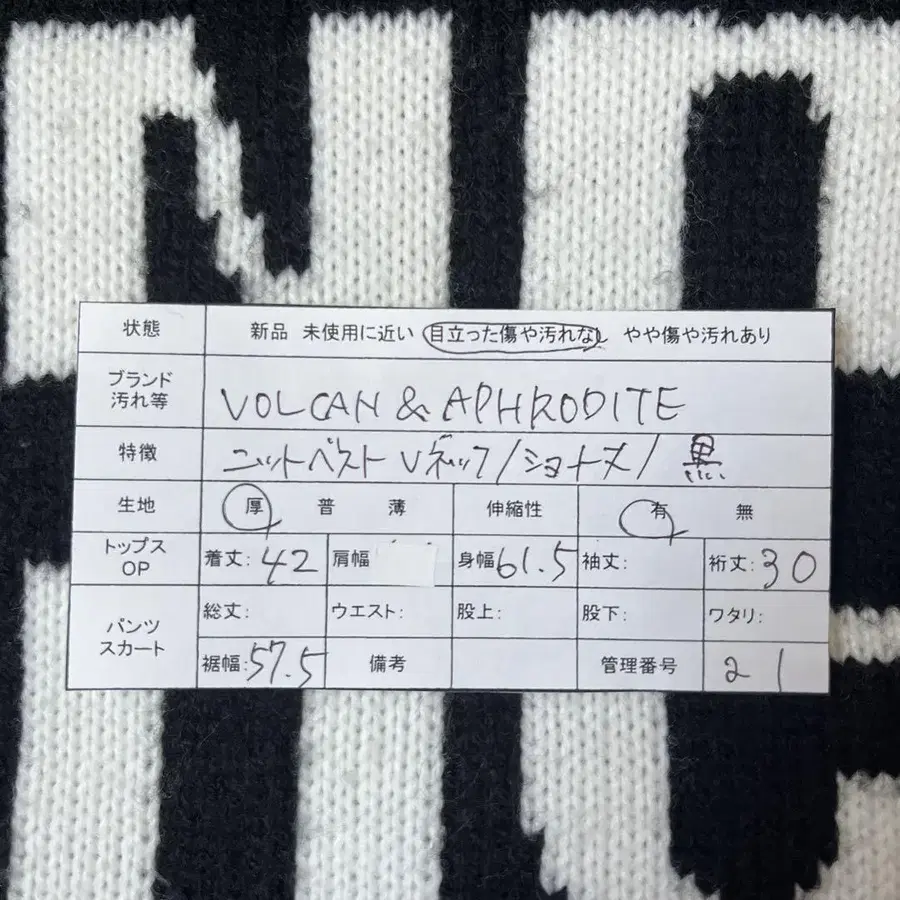 状態 新品 未使用に近い 目立った傷や汚れなし やや傷や汚れあり
ブランド
汚れ等 VOLCAN & APHRODITE
特徴 ニットベスト Vネック/ショート丈/黒
生地 厚 普 薄 伸縮性 有 無
トップス
OP 着丈:42 肩幅 身幅61.5 袖丈: 裄丈:30
パンツ
スカート 総丈: ウエスト: 股上: 股下: ワタリ:
裾幅:57.5 備考 管理番号 21